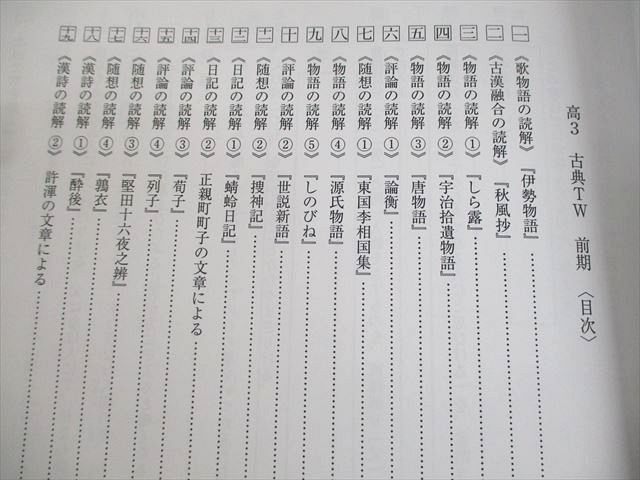 高3 古典TW 前期 〈目次〉
一 《歌物語の読解》『伊勢物語』
二 《古漢融合の読解》『秋風抄』
三 《物語の読解①》『しら露』
四 《物語の読解②》『宇治拾遺物語』
五 《物語の読解③》『唐物語』
六 《評論の読解①》『論衡』
七 《随想の読解①》『東国李相国集』
八 《物語の読解④》『源氏物語』
九 《物語の読解⑤》『しのびね』
十 《評論の読解②》『世説新語』
十一 《随想の読解②》『捜神記』
十二 《日記の読解①》『蜻蛉日記』
十三 《日記の読解②》正親町町子の文章による
十四 《評論の読解③》『荀子』
十五 《評論の読解④》『列子』
十六 《随想の読解③》『堅田十六夜之辨』
十七 《随想の読解④》『鶉衣』
十八 《漢詩の読解①》『酔後』
十九 《漢詩の読解②》許渾の文章による